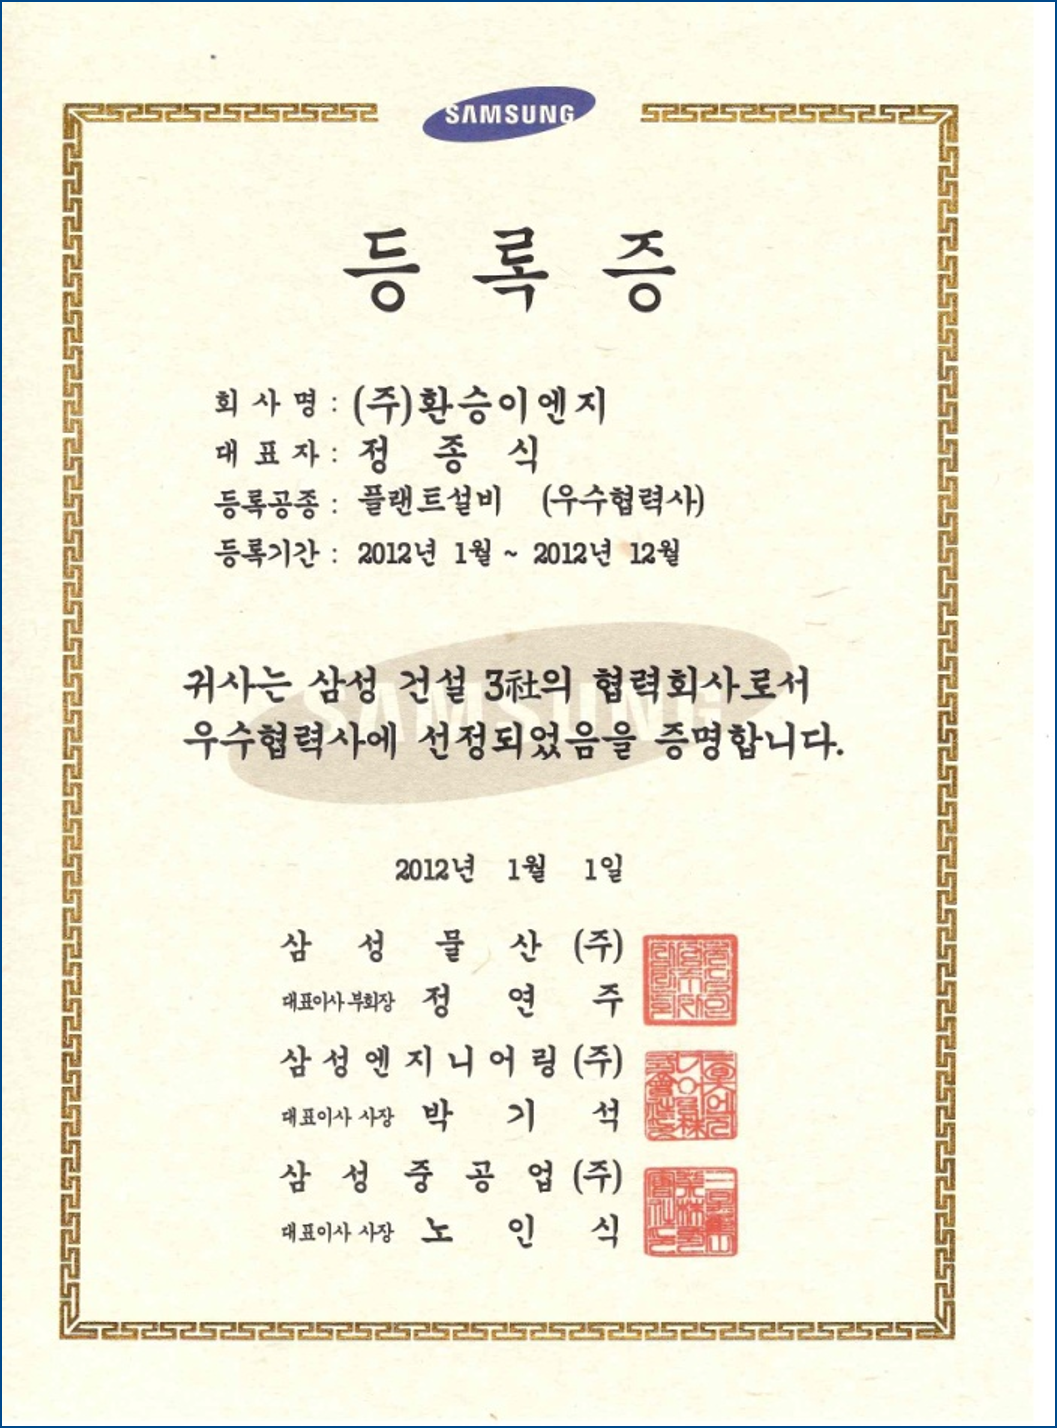 SAMSUNG
등 록 증
회 사 명 : (주)환승이엔지
대 표 자 : 정 종 식
등록공종 : 플랜트설비 (우수협력사)
등록기간 : 2012년 1월 ~ 2012년 12월
SAMSUNG
귀사는 삼성 건설 3社의 협력회사로서
우수협력사에 선정되었음을 증명합니다.
2012년 1월 1일
삼 성 물 산 (주)
대표이사 부회장 정 연 주
삼성엔지니어링(주)
대표이사 사장 박 기 석
삼 성 중 공 업 (주)
대표이사 사장 노 인 식